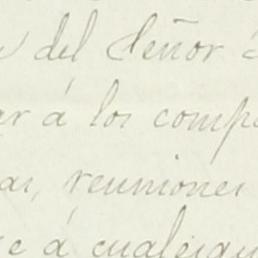 del Señor
ar á los comp
as, reuniones
e á cualesqu